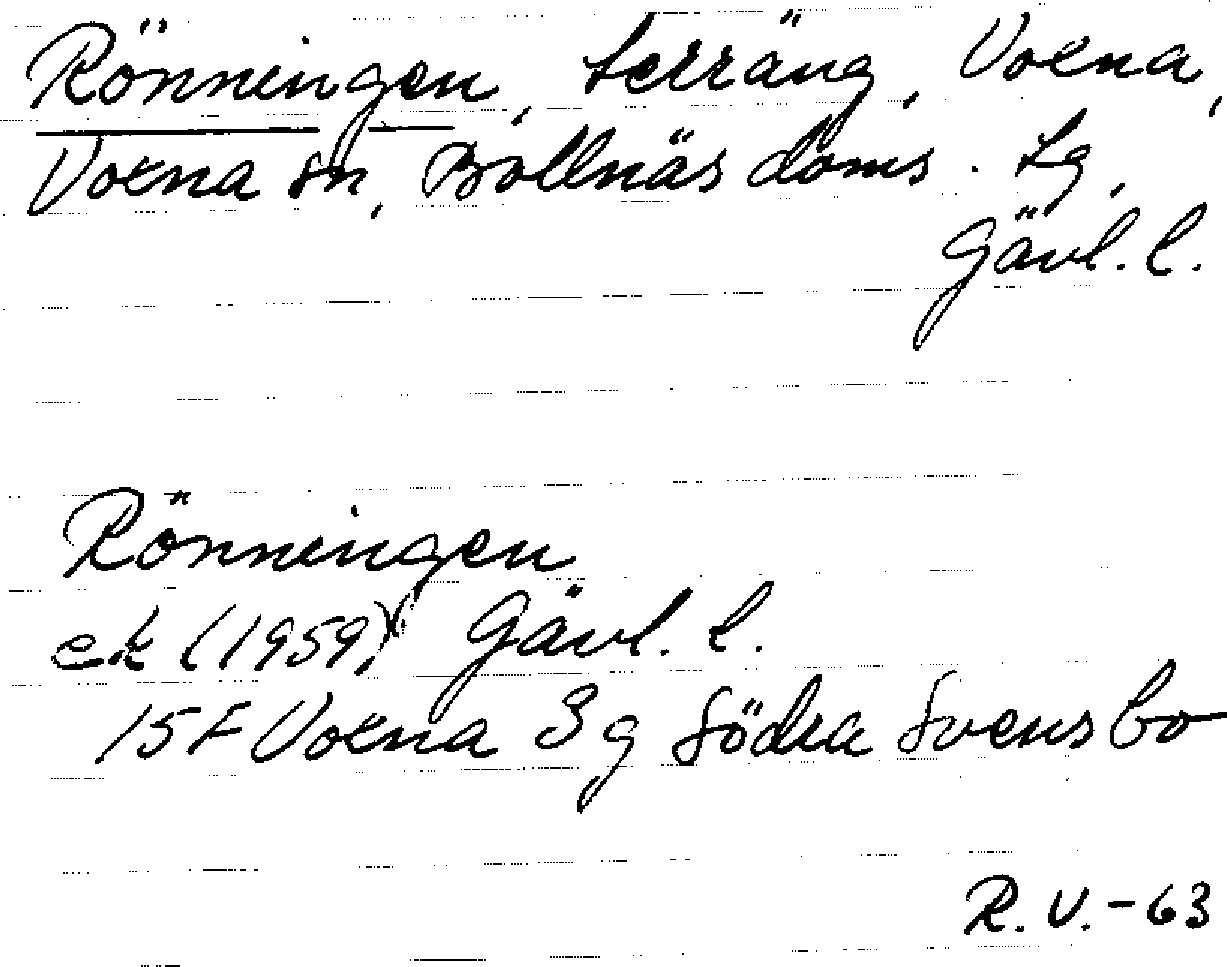 Rönningen, terräng, Voxna,
Voxna sn, Bollnäs doms. Lg,
Gävl. l.
Rönningen
ek (1959) Gävl. l.
15F Voxna 3 g Södra Svensbo
R.V.-63